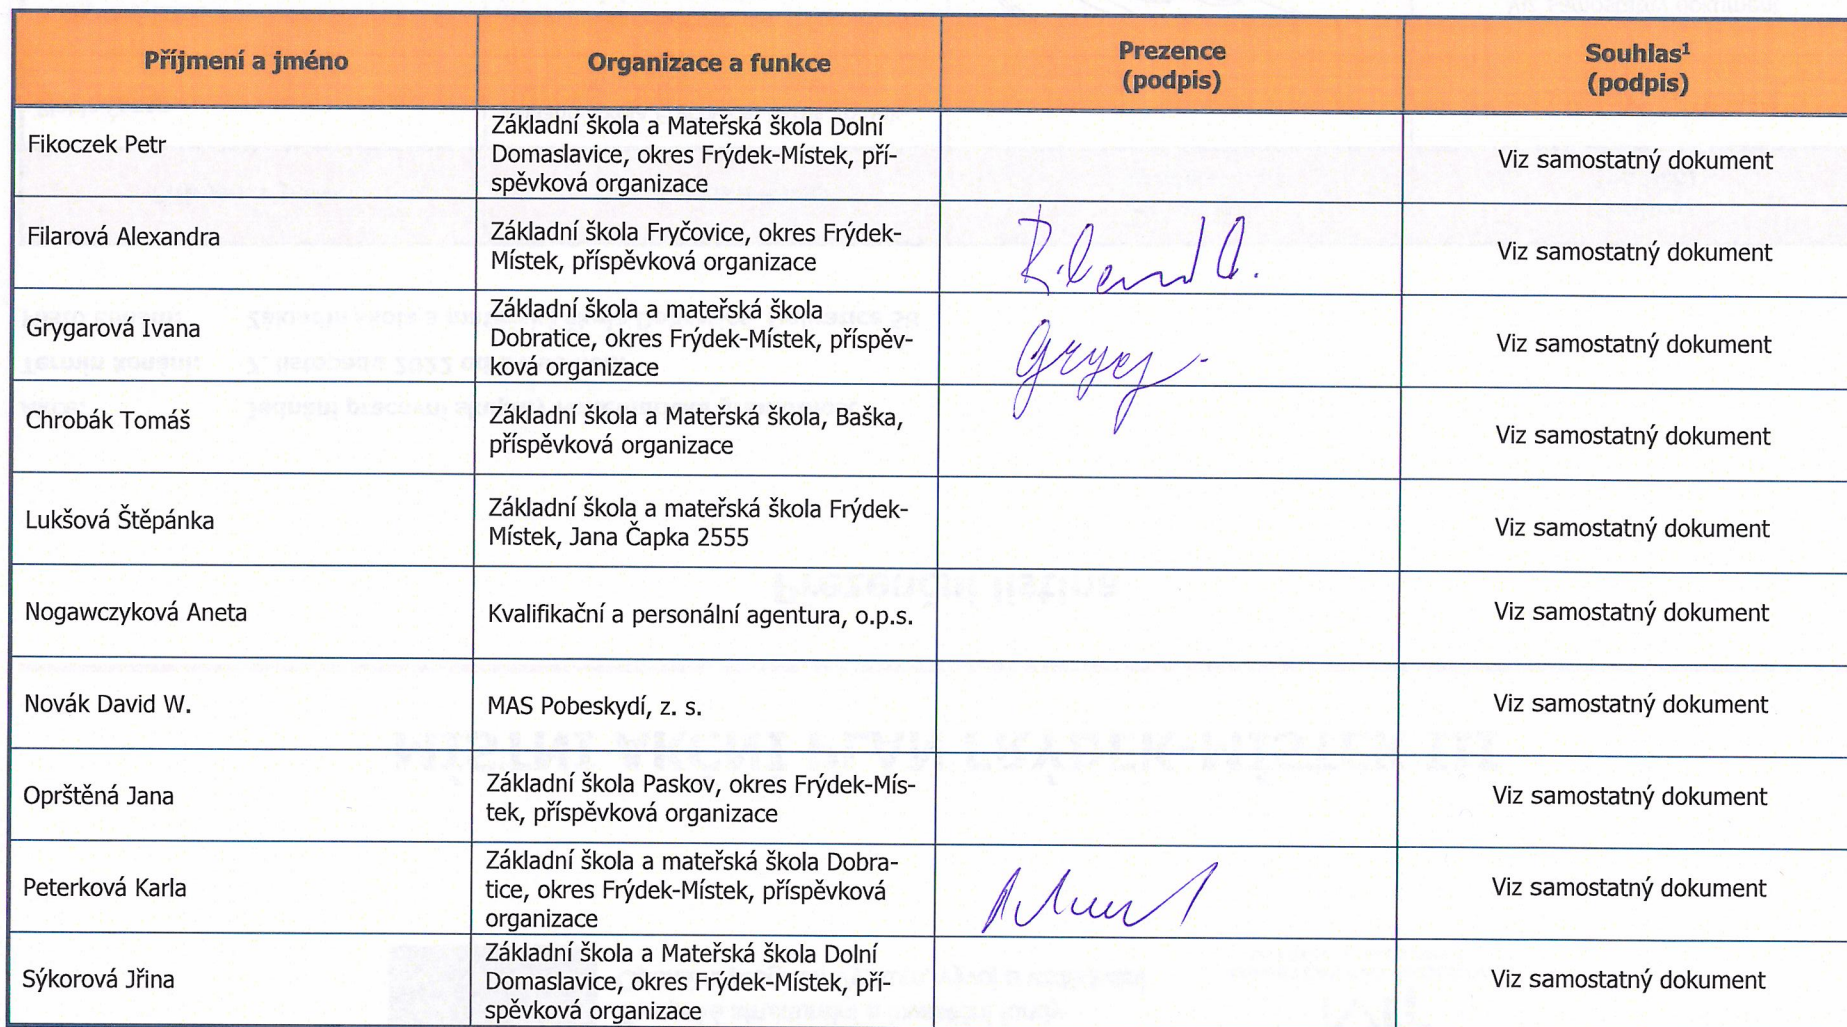 Příjmení a jméno
Organizace a funkce
Prezence
(podpis)
Souhlas¹
(podpis)
Fikoczek Petr
Základní škola a Mateřská škola Dolní
Domaslavice, okres Frýdek-Místek, pří-
spěvková organizace
Viz samostatný dokument
Filarová Alexandra
Základní škola Fryčovice, okres Frýdek-
Místek, příspěvková organizace
Viz samostatný dokument
Grygarová Ivana
Základní škola a mateřská škola
Dobratice, okres Frýdek-Místek, příspěv-
ková organizace
Viz samostatný dokument
Chrobák Tomáš
Základní škola a Mateřská škola, Baška,
příspěvková organizace
Viz samostatný dokument
Lukšová Štěpánka
Základní škola a mateřská škola Frýdek-
Místek, Jana Čapka 2555
Viz samostatný dokument
Nogawczyková Aneta
Kvalifikační a personální agentura, o.p.s.
Viz samostatný dokument
Novák David W.
MAS Pobeskydí, z. s.
Viz samostatný dokument
Oprštěná Jana
Základní škola Paskov, okres Frýdek-Mís-
tek, příspěvková organizace
Viz samostatný dokument
Peterková Karla
Základní škola a mateřská škola Dobra-
tice, okres Frýdek-Místek, příspěvková
organizace
Viz samostatný dokument
Sýkorová Jřina
Základní škola a Mateřská škola Dolní
Domaslavice, okres Frýdek-Místek, pří-
spěvková organizace
Viz samostatný dokument